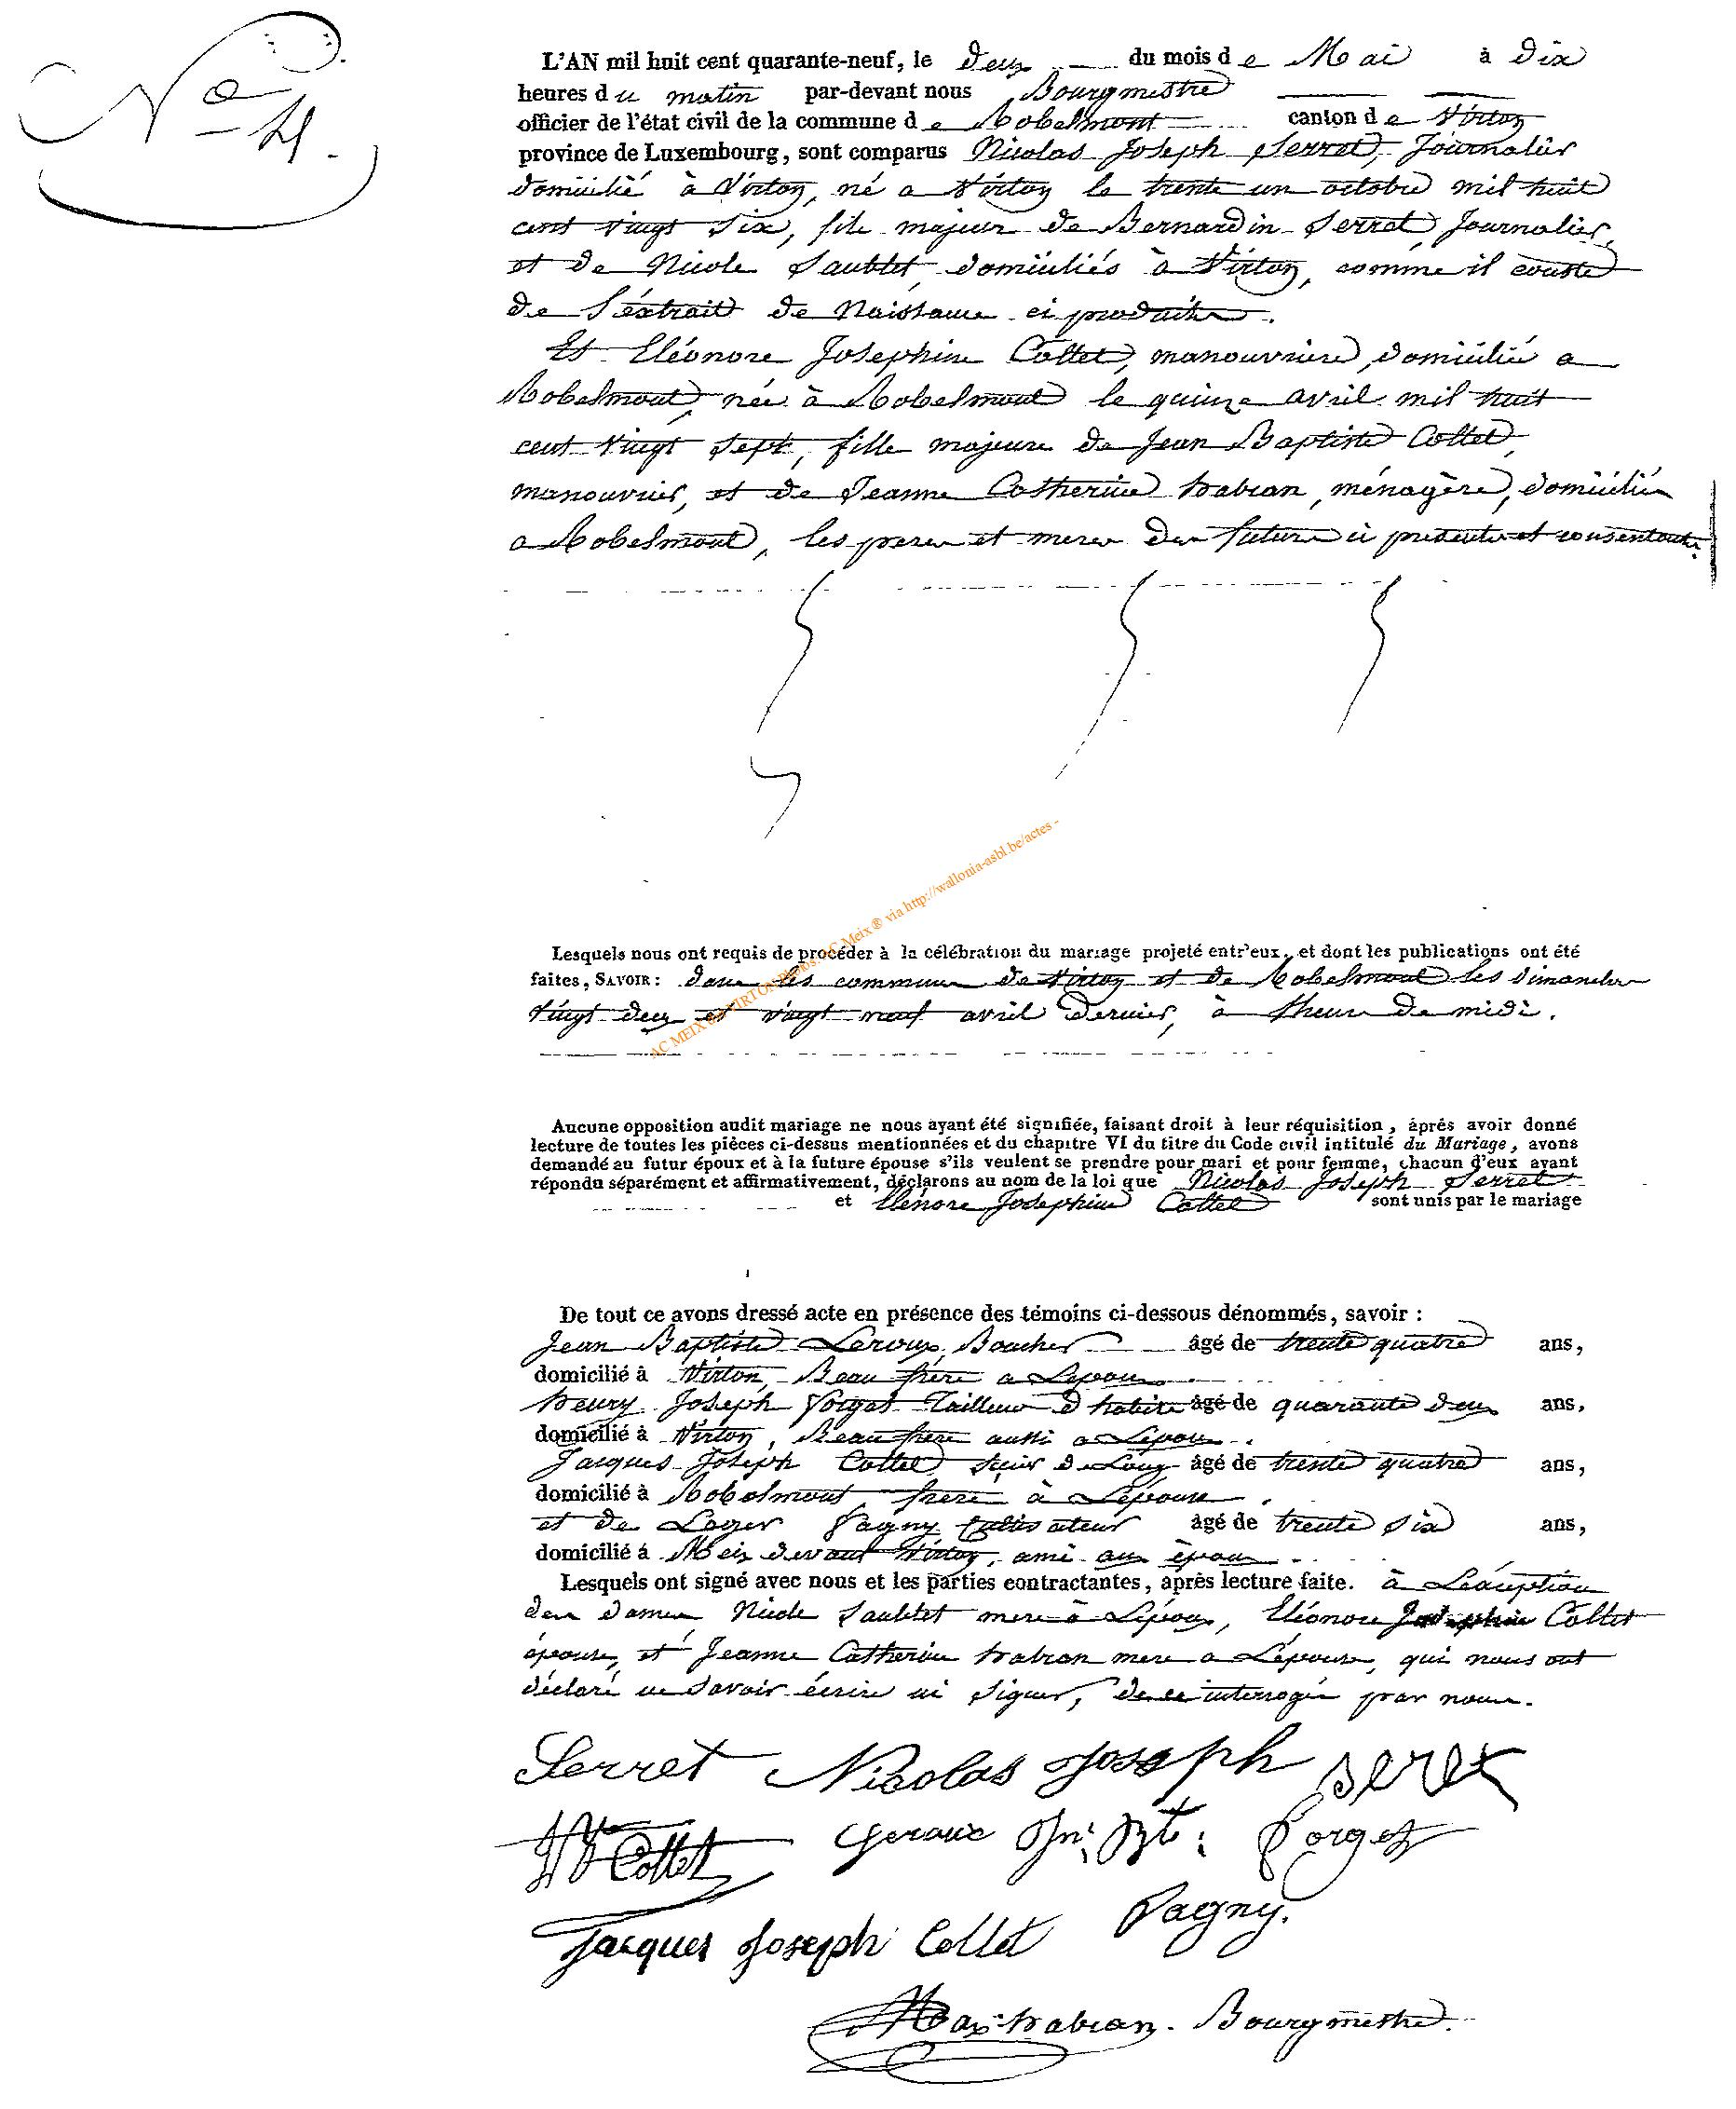 N° 4.
L'AN mil huit cent quarante-neuf, le deux du mois de Mai à dix
heures du matin par-devant nous Bourgmestre
officier de l'état civil de la commune de Robelmont canton de Virton
province de Luxembourg, sont comparus Nicolas Joseph Serret, Journalier
domicilié à Virton, né a Virton le trente un octobre mil huit
cent vingt six, fils majeur de Bernardin Serret, Journalier,
et de Nicole Saublet, domiciliés à Virton, comme il conste
de l'éxtrait de Naissance ci produite.
Et Eléonore Josephine Collet, manouvriere, domicilié a
Robelmont, née à Robelmont le quinze avril mil huit
cent vingt sept, fille majeure de Jean Baptiste Collet,
manouvrier, et de Jeanne Catherine habran, ménagère, domiciliés
a Robelmont, les peres et meres des futurs ci presents et consentants.
Lesquels nous ont requis de procéder à la célébration du mariage projeté entr'eux, et dont les publications ont été
faites, SAVOIR : dans les communes de Virton et de Robelmont les dimanches
vingt deux et vingt neuf avril dernier, à l'heure de midi.
AC MEIX dvt VIRTON Photos: AC Meix ® via http://wallonia-asbl.be/actes -
Aucune opposition audit mariage ne nous ayant été signifiée, faisant droit à leur réquisition, après avoir donné
lecture de toutes les pièces ci-dessus mentionnées et du chapitre VI du titre du Code civil intitulé du Mariage, avons
demandé au futur époux et à la future épouse s'ils veulent se prendre pour mari et pour femme, chacun d'eux ayant
répondu séparément et affirmativement, déclarons au nom de la loi que Nicolas Joseph Serret
et Elénore Josephine Collet sont unis par le mariage
De tout ce avons dressé acte en présence des témoins ci-dessous dénommés, savoir :
Jean Baptiste Leroux, Boucher âgé de trente quatre ans,
domicilié à Virton, Beau frère a Lépoux.
henry Joseph Forget Tailleur d habits âgé de quarante deux ans,
domicilié à Virton, Beau frère aussi a Lépoux.
Jacques Joseph Collet, scieur de Long âgé de trente quatre ans,
domicilié à Robelmont, frère à Lépouse.
et de Leger Pagny Cultivateur âgé de trente six ans,
domicilié à Meix devant Virton, ami aux époux.
Lesquels ont signé avec nous et les parties contractantes, après lecture faite. à Léxception
des dames Nicole Saublet mere à Lépoux, Eléonore Josephine Collet
épouse, et Jeanne Catherine habran mere a Lépouse, qui nous ont
déclaré ne savoir écrire ni signer, de ce interrogés par nous.
Serret Nicolas Joseph seret
Collet Geroux Jn. Bte. Forget
Pagny.
Jacques Joseph Collet
habran. Bourgmestre.